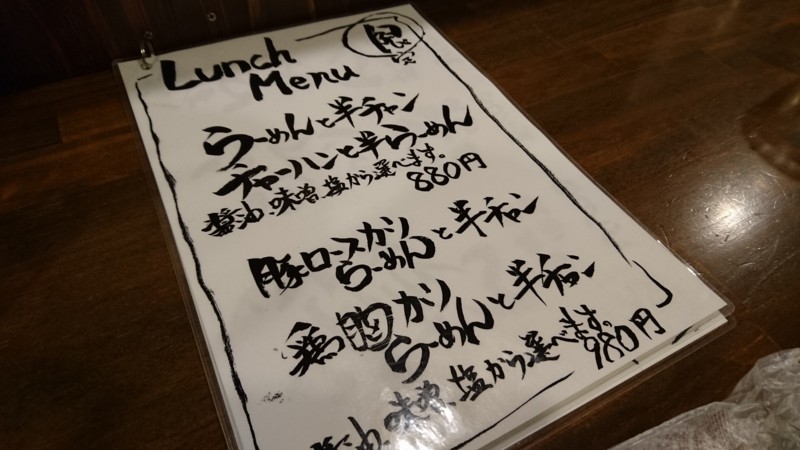 Lunch
Menu
限定
らーめんと半チャン
チャーハンと半らーめん
醤油、味噌、塩から選べます。
880円
豚ロースカツ
らーめんと半チャン
鶏胸カツ
らーめんと半チャン
醤油、味噌、塩から選べます。
980円